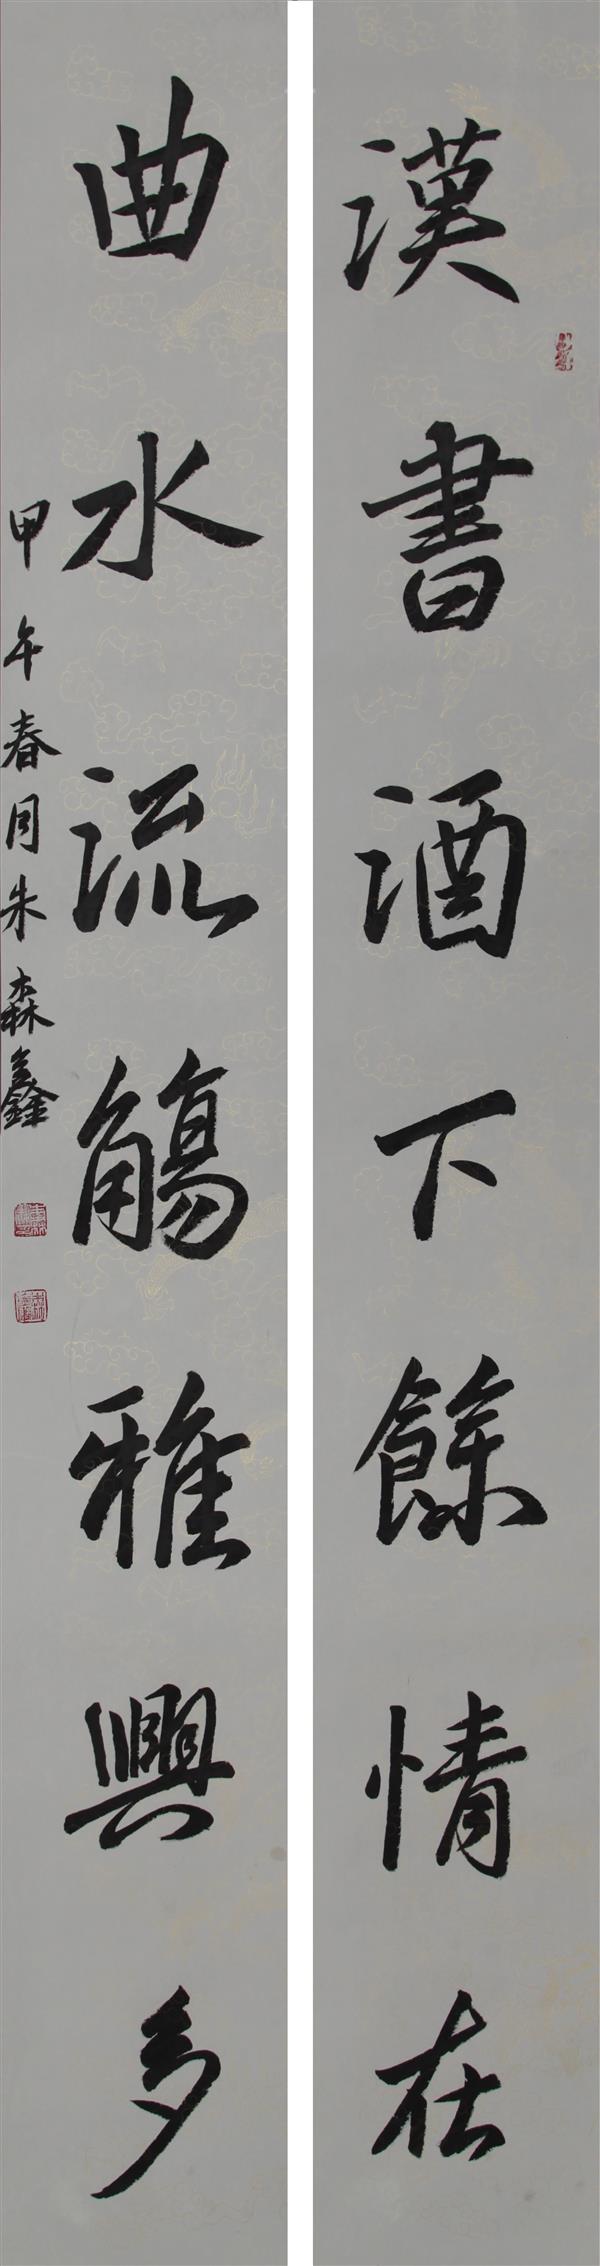 漢書酒下餘情在
曲水流觴雅興多
甲午春月朱森鑫